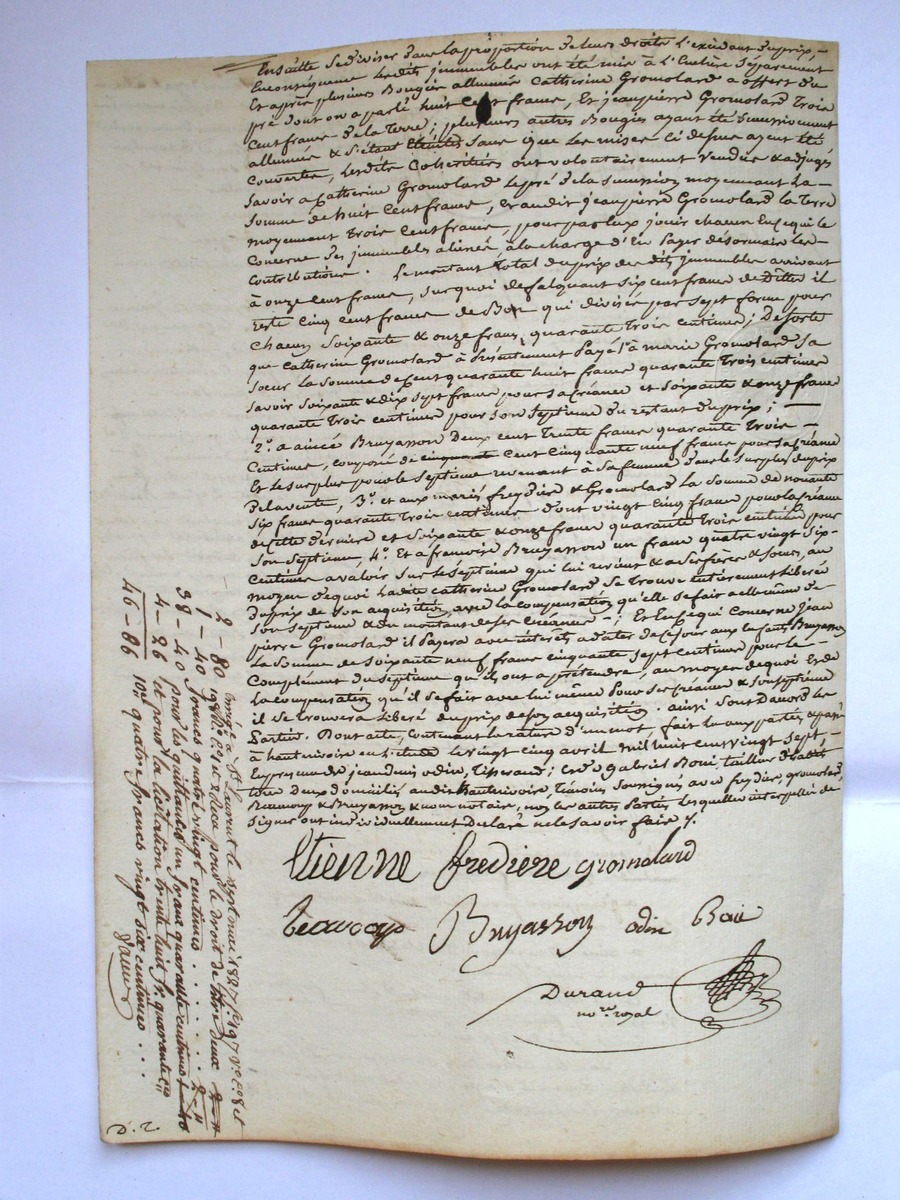 Ensuitte Se diviser dans la proportion de leurs droits l'excédant du prix,
En conséquence lesdits immeubles ont été mis à l'Enchère séparément
Et après plusieurs Bougies allumées Catherine Gromolard a offert du
pré dont on a parlé huit Cent francs, Et jeanpierre Gromolard Trois
Cent francs de la Terre; plusieurs autres Bougies ayant été successivement
allumées & s'étant Eteintes sans que les mises ci dessus ayent été
Couvertes, lesdits Cohéritiers ont volontairement Vendus & adjugés
Savoir a Catherine Gromolard le pré de la succession moyennant la
Somme de huit Cent francs, Et audit jeanpierre Gromolard la Terre
moyennant Trois Cent francs, pour par Eux jouir chacun En ce qui le
Concerne des immeubles aliénés à la charge d'En payer désormais les
Contributions. Le montant total du prix desdits immeubles arrivant
à onze cent francs, sur quoi defalquant six cent francs de Dettes il
reste Cinq cent francs de Bon qui divisés par sept forme pour
Chacun Soixante & onze francs quarante Trois centimes; De sorte
que Catherine Gromolard à présentement Payé 1° à marie Gromolard Sa
Soeur la Somme de Cent quarante huit francs quarante Trois centimes
Savoir Soixante & dix sept francs pour sa créance et soixante & onze francs
quarante Trois centimes pour son Septieme du restant du prix;
2° a aincée Bruyasson Deux cent Trente francs quarante Trois
Centimes, composé de cinquante Cent cinquante neuf francs pour sa créance
Et le surplus pour le Septieme revenant à sa femme dans le surplus du prix
De la vente, 3° et aux mariés freydier & Gromolard la Somme de nonante
Six francs quarante Trois centimes dont vingt Cinq francs pour la créance
de cette Derniere et Soixante & onze francs quarante Trois centimes pour
Son Septieme, 4° Et a francoise Bruyasson un franc quatre vingt Six
Centimes a valoir sur le Septieme qui lui revient & a ses frères & Soeurs, au
moyen de quoi ladite Catherine Gromolard Se Trouve Entièrement libérée
Du prix de son acquisition, avec la compensation qu'elle se fait a elle même de
Son Septieme & du montant de ses créances; Et En ce qui Concerne Jean
pierre Gromolard il Payera avec intérêts a dater de ce jour aux Enfants Bruyasson
La Somme de soixante neuf francs cinquante Sept centimes pour le
Complément du Septieme qu'ils ont a prétendre, au moyen de quoi Et de
La compensation qu'il se fait avec lui même Pour Ses créances & Son Septieme
il Se trouvera libéré du prix de son acquisition. ainsi Sont D'accord les
Parties. Dont acte, Contenant la rature d'un mot, fait lu aux parties & passé
à hauterivoire En l'étude le vingt cinq avril mil huit cent vingt sept,
En présence de jeandenis odin, Tisserand; Et de Gabriel Boui tailleur d'habits
tous deux domiciliés audit hauterivoire, Témoins Soussignés avec freydier, gromolard,
Beaucoup & Bruyasson & nous notaire, non les autres Parties lesquelles interpellées de
Signer ont individuellement Déclaré ne le Savoir faire /.
Etienne frediere gromolard
beaucoup Bruyasson odin Boui
Durand
no.re royal
2 - 80 Enregé a St Laurent le sept mai 1827 f° 197 v° C. 8 et
1 - 40 198 r° C. 1 et 2 Reçu pour le droit de titre deux
38 - 40 francs quatre vingt centimes . . . . . 2 -
4 - 26 pour les quittances un franc quarante centimes
46 - 86 Et pour la licitation trente huit fr. quarante c.es
10.e quatre francs vingt six centimes . . .
D. 2.